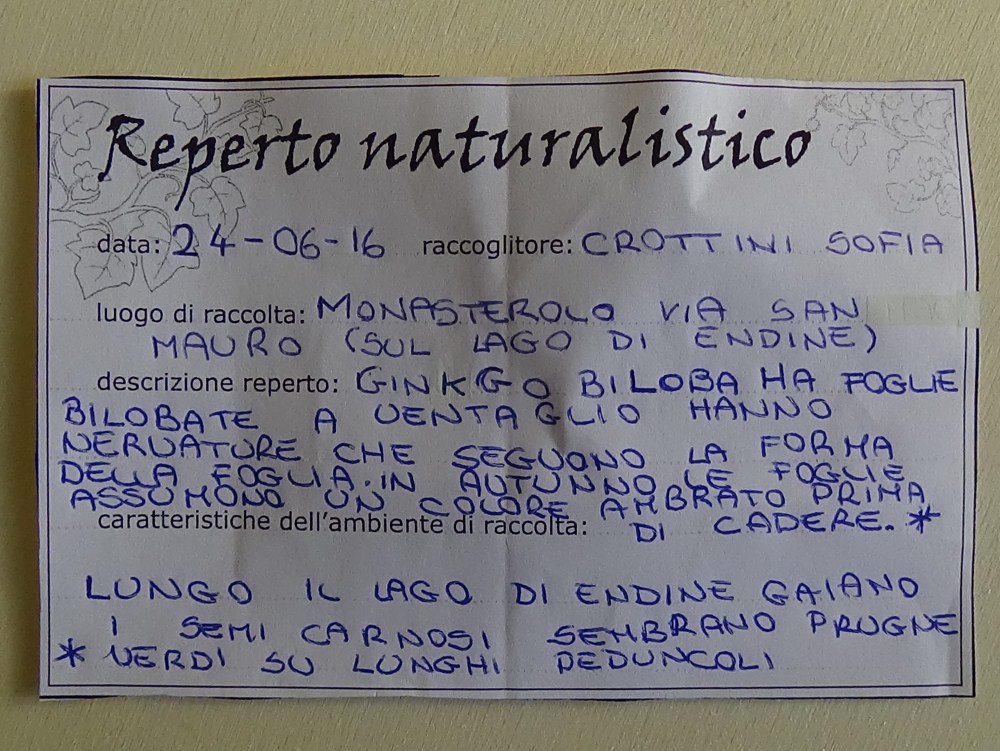 Reperto naturalistico
data: 24-06-16 raccoglitore: CROTTINI SOFIA
luogo di raccolta: MONASTEROLO VIA SAN
MAURO (SUL LAGO DI ENDINE)
descrizione reperto: GINKGO BILOBA HA FOGLIE
BILOBATE A VENTAGLIO HANNO
NERVATURE CHE SEGUONO LA FORMA
DELLA FOGLIA. IN AUTUNNO LE FOGLIE
ASSUMONO UN COLORE AMBRATO PRIMA
caratteristiche dell'ambiente di raccolta: DI CADERE. *
LUNGO IL LAGO DI ENDINE GAIANO
I SEMI CARNOSI SEMBRANO PRUGNE
* VERDI SU LUNGHI PEDUNCOLI